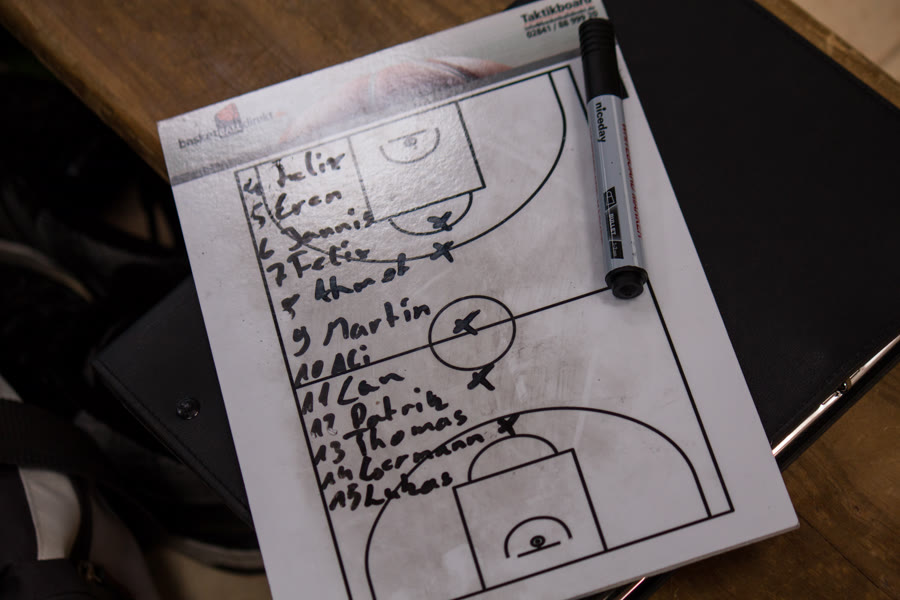 Taktikboard
02841 / 88 999 20
basketballdirekt
niceday
4 Felix
5 Eren
6 Jannis
7 Felix
8 Ahmet
9 Martin
10 Ali
11 Can
12 Patrik
13 Thomas
14 Coermann
15 Lukas